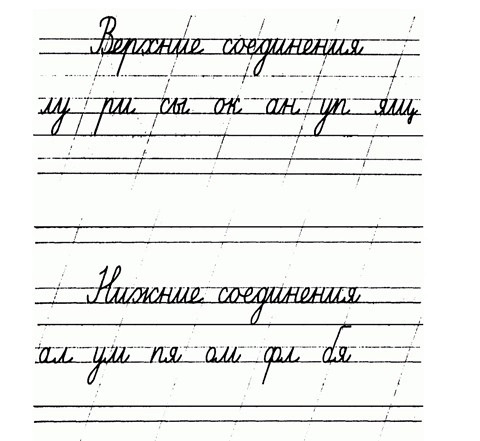 Верхние соединения
лу ри сы ок ан уп ящ
Нижние соединения
ал ум пя ом фл бя